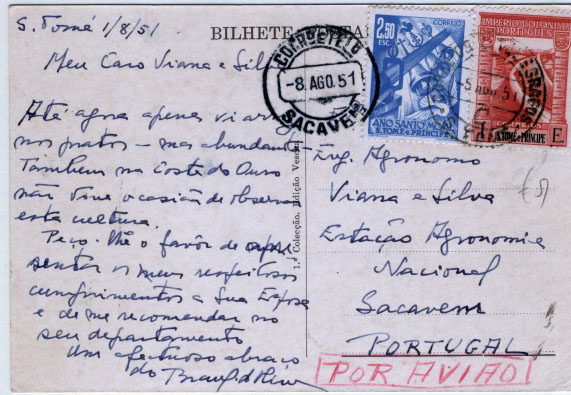 S. Tomé 1/8/51
BILHETE
Meu Caro Viana e Silva
Até agora apenas vi arroz
nos pratos — mas abundante
Também na Costa do Ouro
não tive ocasião de observar
esta cultura.
Peço-lhe o favôr de apre
sentar os meus respeitosos
cumprimentos a Sua Esposa
e de me recomendar no
seu departamento
Um afectuoso abraço
do
1.ª Colecção. Edição
CORREIO
2$50
ESC.
ANO SANTO
S. TOMÉ E PRINCIPE
IMPÉRIO COLONIAL
PORTUGUÊS
S. TOMÉ E PRINCIPE
1 E.
-8. AGO. 51
SACAVEM
Eng. Agronomo
Viana e Silva
Estação Agronomica
Nacional
Sacavem
PORTUGAL
POR AVIÃO